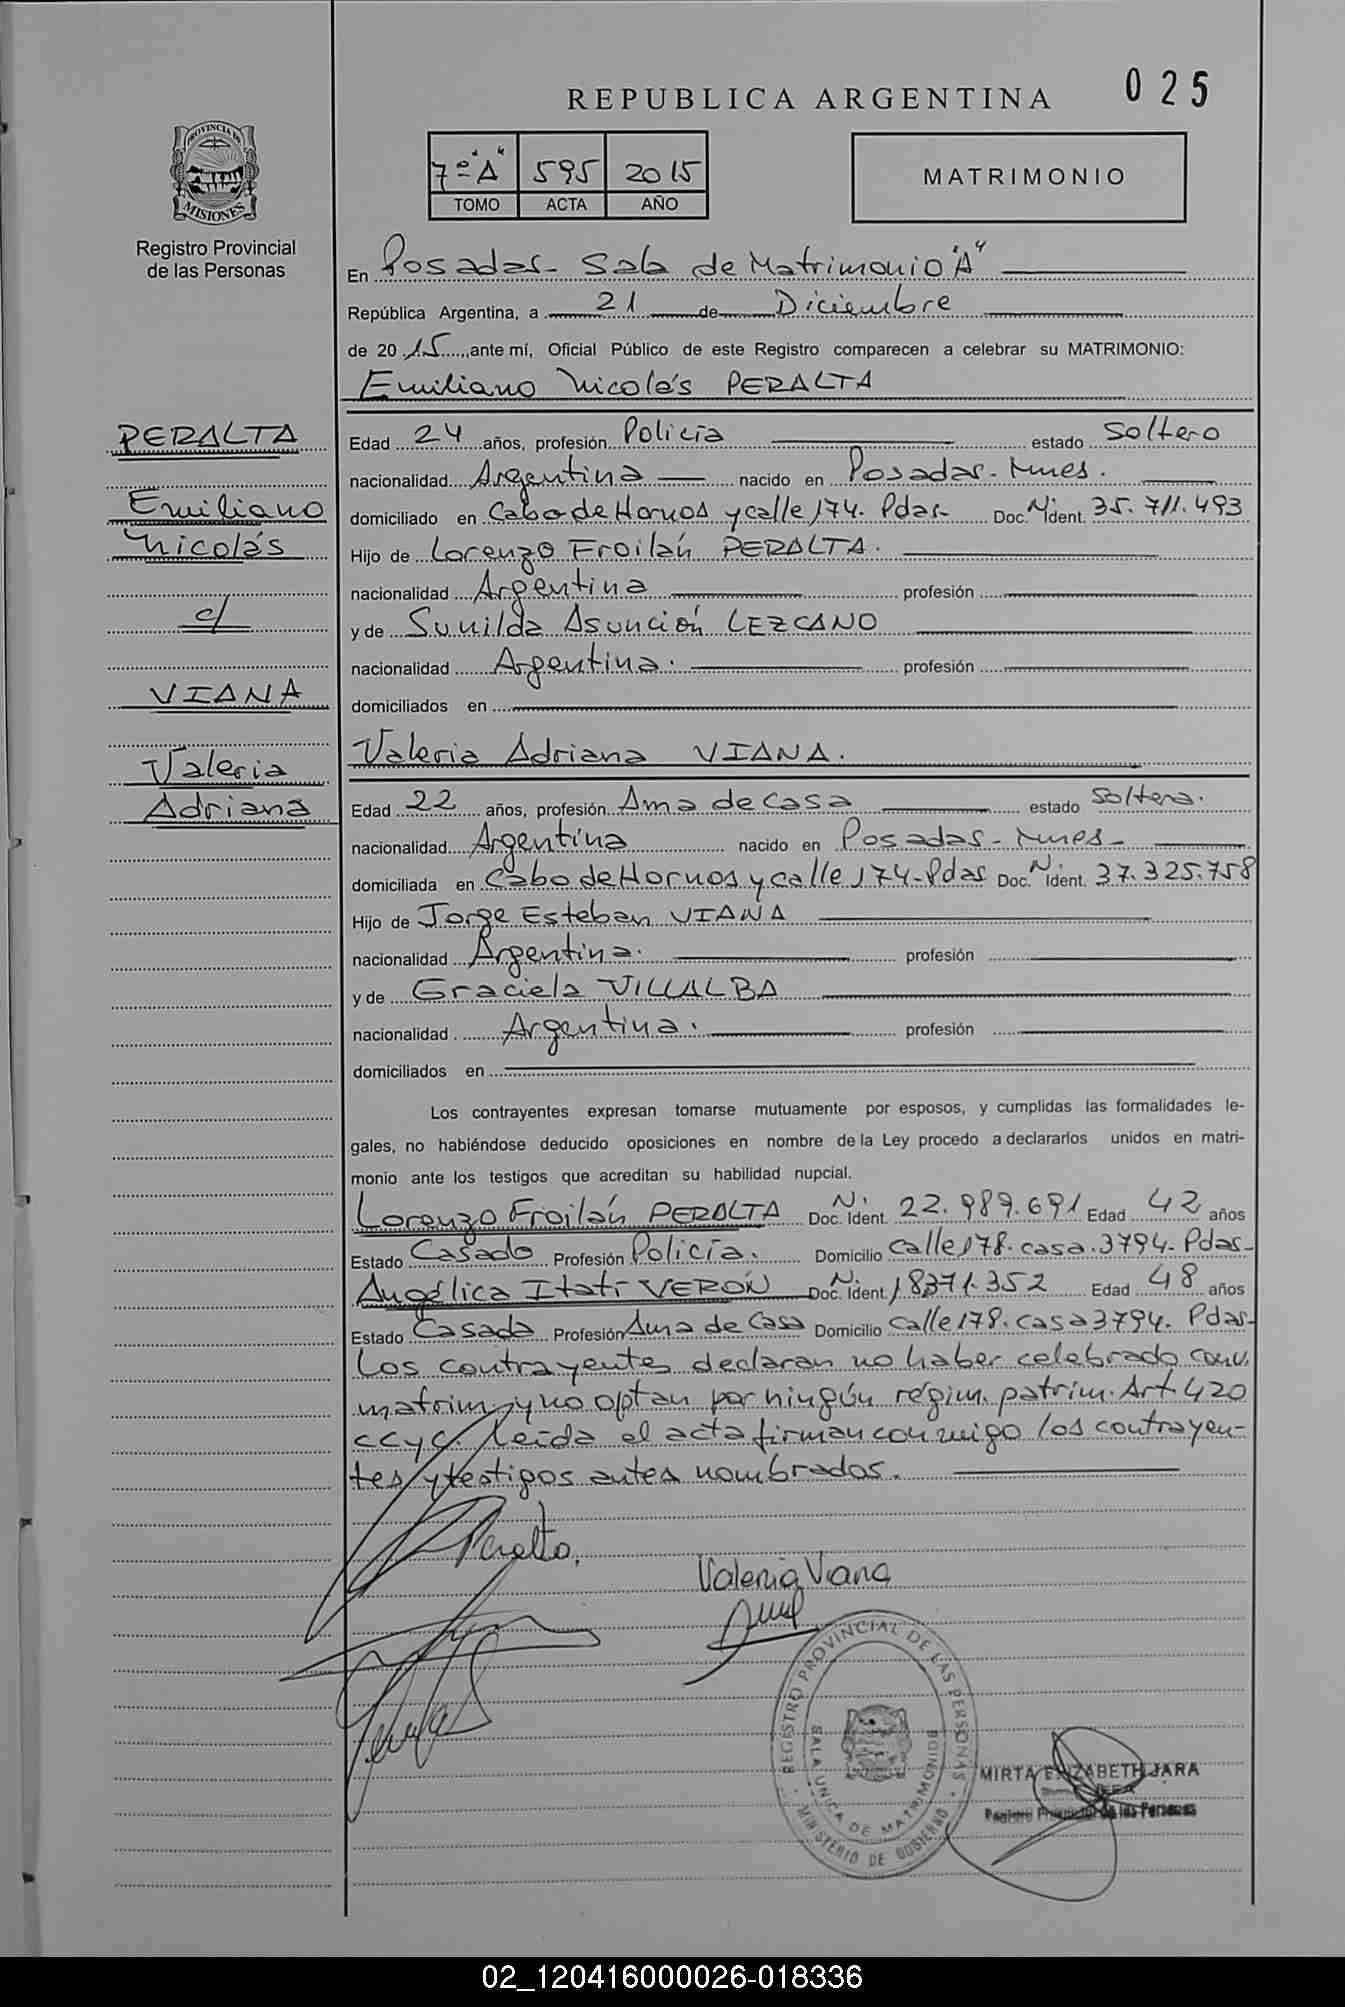 025
REPUBLICA ARGENTINA
PROVINCIA DE
MISIONES
Registro Provincial
de las Personas
7º "A" 595 2015
TOMO ACTA AÑO
MATRIMONIO
En Posadas- Sala de Matrimonio "A"
República Argentina, a 21 de Diciembre
de 20 15 ante mí, Oficial Público de este Registro comparecen a celebrar su MATRIMONIO:
Emiliano Nicolás PERALTA
PERALTA
Emiliano
Nicolás
c/
VIANA
Valeria
Adriana
Edad 24 años, profesión Policía estado Soltero
nacionalidad Argentina nacido en Posadas- Mnes.
domiciliado en Cabo de Hornos y calle 174. Pdas- Doc. N. Ident. 35.711.493
Hijo de Lorenzo Froilán PERALTA.
nacionalidad Argentina profesión
y de Sunilda Asunción LEZCANO
nacionalidad Argentina. profesión
domiciliados en
Valeria Adriana VIANA.
Edad 22 años, profesión Ama de Casa estado Soltera.
nacionalidad Argentina nacido en Posadas- Mnes-
domiciliada en Cabo de Hornos y calle 174-Pdas Doc. N. Ident. 37.325.758
Hijo de Jorge Esteban VIANA
nacionalidad Argentina. profesión
y de Graciela VILLALBA
nacionalidad Argentina. profesión
domiciliados en
Los contrayentes expresan tomarse mutuamente por esposos, y cumplidas las formalidades le-
gales, no habiéndose deducido oposiciones en nombre de la Ley procedo a declararlos unidos en matri-
monio ante los testigos que acreditan su habilidad nupcial.
Lorenzo Froilán PERALTA Doc. N. Ident. 22.989.691 Edad 42 años
Estado Casado Profesión Policía. Domicilio calle 178. casa.3794- Pdas-
Angélica Itatí VERÓN Doc. N. Ident. 18371.352 Edad 48 años
Estado Casada Profesión Ama de Casa Domicilio calle 178. casa 3794. Pdas-
Los contrayentes declaran no haber celebrado conv.
matrim. y no optan por ningún régim. patrim. Art. 420
CCyC. Leída el acta firman conmigo los contrayen-
tes y testigos antes nombrados.
Peralta.
Valeria Viana
REGISTRO PROVINCIAL DE LAS PERSONAS
SALA UNICA DE MATRIMONIOS
MINISTERIO DE GOBIERNO
MIRTA ELIZABETH JARA
Registro Provincial de las Personas
02_120416000026-018336